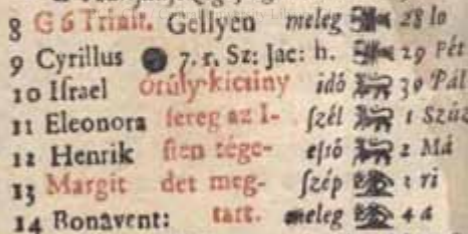 8 G 6 Trinit. Gellyén meleg 28 lo
9 Cyrillus 7. r. Sz: Jac: h. 29 Pét
10 Israel örüly kicsiny idó 30 Pál
11 Eleonora sereg az I- ſzél 1 Szűz
12 Henrik ſten tége- eſsó 2 Má
13 Margit det meg- ſzép 3 ri
14 Bonavent: tart. meleg 4 á